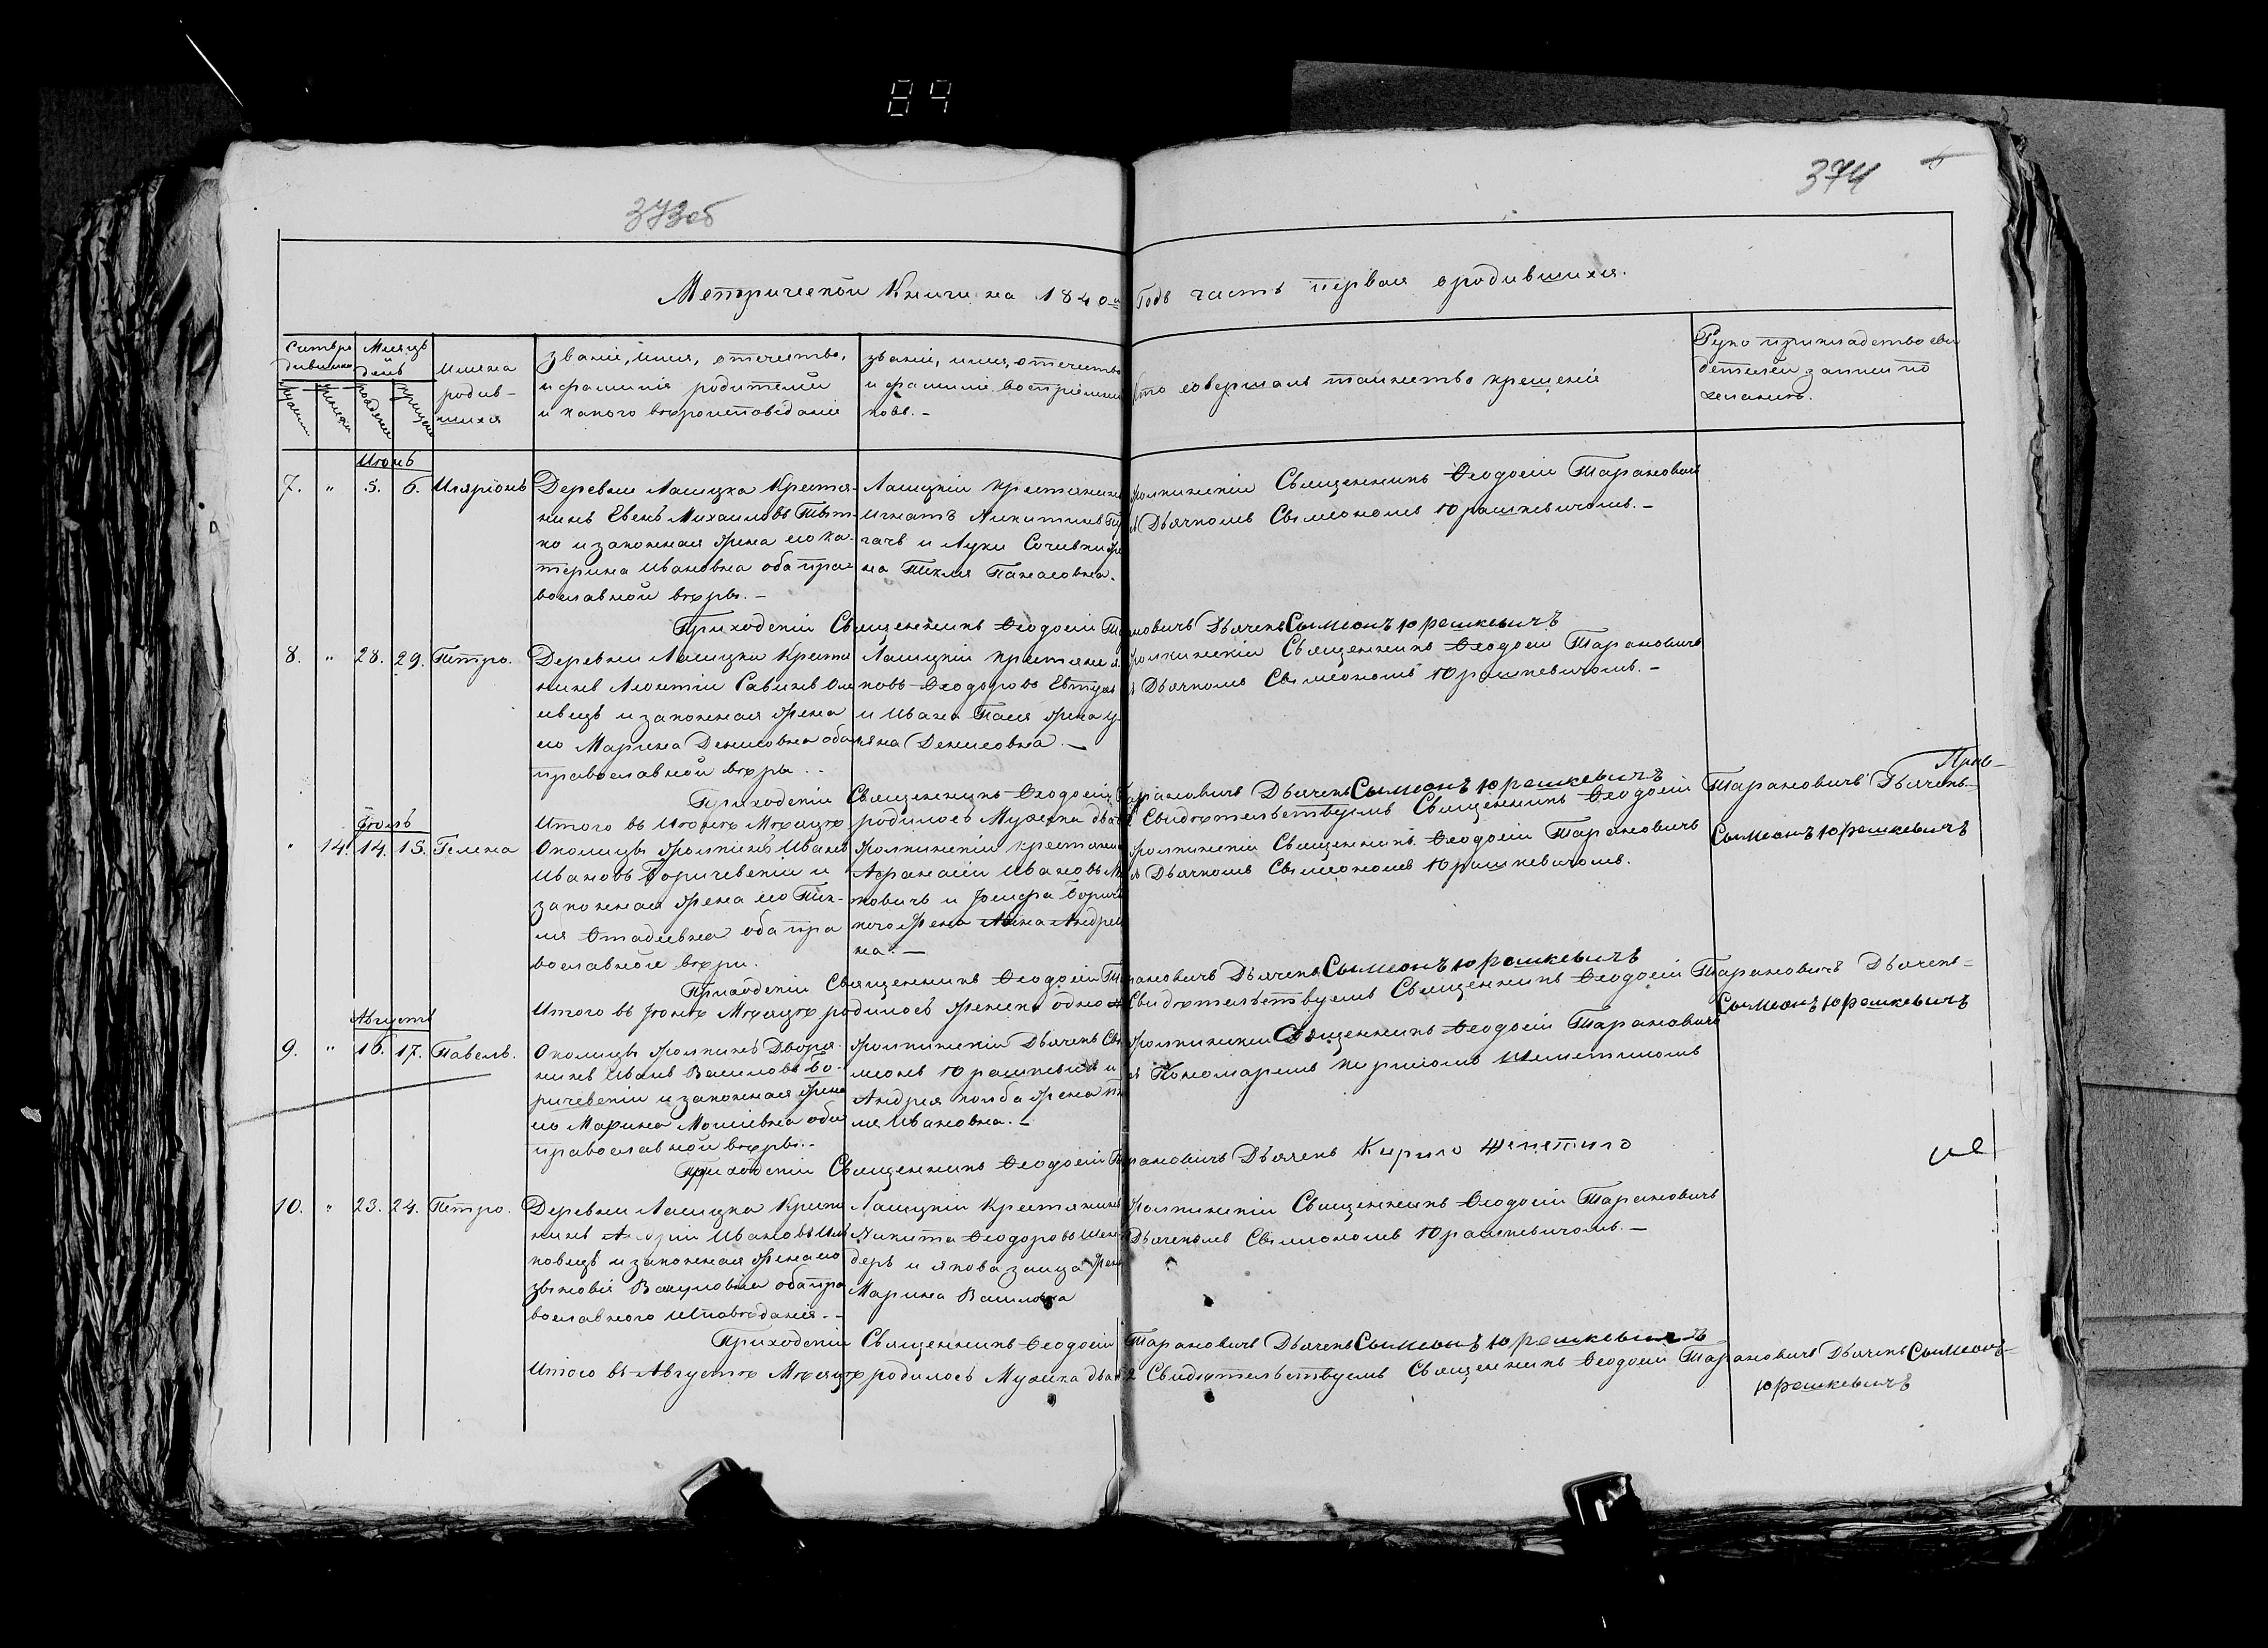 84
373об
374
Метрической Книги на 1840й Годъ часть первая о родившихся.
Мѣсяцъ
день
имена
родив-
шихся
званіе, имя, отечество,
и фамилія родителей
и какого вѣроисповѣданія
званіе, имя, отечество
и фамилія воспріемни
ковъ.-
Кто совершалъ таинство крещенія
Руко прикладство сви
детелей записи по
желанію.
Июнь
7. " 5. 6. Иляріонъ
Деревни Ласицка Крестя-
нинъ Евенъ Михаиловъ
но и законная жена его Ка-
терина Ивановна оба пра-
вославной вѣры.-
Ласицкій крестянинъ
Игнатъ Никитинъ
гачъ и Луки Сочивки же
на Текля Панасовна.
Священникъ Ѳеодосій Тарановичъ
съ Дьячкомъ Сѵмеономъ Юрашкевичомъ.-
Приходскій Священникъ Ѳеодосій Тарановичъ Дьячекъ Сымеонъ Юрашкевичъ
8. " 28. 29. Петро.
Деревни Ласицка Крестя
нинъ Леонтій Савинъ
и законная жена
его Марина Денисовна оба
православной вѣры.-
Ласицкій крестянин я
ковъ Ѳеодоровъ
и Ивана жена у-
ляна Денисовна.-
Священникъ Ѳеодосій Тарановичъ
съ Дьячкомъ Сѵмеономъ Юрашкевичомъ.-
Приходскій Священникъ Ѳеодосій Тарановичъ Дьячекъ Сымеонъ Юрашкевичъ
Итого въ Июнѣ Мѣсяцѣ родилось Мужска два 2 Свидѣтельствуемъ Священникъ Ѳеодосій Тарановичъ Дьячекъ
Сымеонъ Юрашкевичъ
Іюль
" 14. 14. 15. Гелена
Околицы Иванъ
Ивановъ Боричевскій и
законная жена его Тек-
ля Ѳтадеевна оба пра
вославной вѣры.
крестянинъ
Афанасій Ивановъ
новичъ и Боричев
кого жена Анна Андрее
на.-
Священникъ Ѳеодосій Тарановичъ
съ Дьячкомъ Сѵмеономъ Юрашкевичомъ.
Приходскій Священникъ Ѳеодосій Тарановичъ Дьячекъ Сымеонъ Юрашкевичъ
Итого въ Мѣсяцѣ родилось Женска одно Свидѣтельствуемъ Священникъ Ѳеодосій Тарановичъ Дьячекъ-
Сымеонъ Юрашкевичъ
Августъ
9. " 16. 17. Павелъ.
Околицы Дворя-
нинъ Иванъ Василовъ Бо-
ричевскій и законная жена
его Марина оба
православной вѣры.-
Дьячекъ Сѵ
меонъ Юрашкевичъ и
Андрея жена тек
ля Ивановна.-
Священникъ Ѳеодосій Тарановичъ
съ Пономаремъ
Приходскій Священникъ Ѳеодосій Тарановичъ Дьячекъ Кирило
10. " 23. 24. Петро.
Деревни Ласицка Крестя
нинъ Ивановъ
и законная жена его
оба пра
вославного исповѣданія.-
Ласицкій Крестянинъ
Никита Ѳеодоровъ
деръ и якова заица жена
Марина Василовна
Священникъ Ѳеодосій Тарановичъ
Дьячкомъ Сѵмеономъ Юрашкевичомъ.-
Приходскій Священникъ Ѳеодосій Тарановичъ Дьячекъ Сымеонъ Юрашкевичъ
Итого въ Августѣ Мѣсяцѣ родилось Мужска два 2 Свидѣтельствуемъ Священникъ Ѳеодосій Тарановичъ Дьячекъ Сымеонъ-
Юрашкевичъ